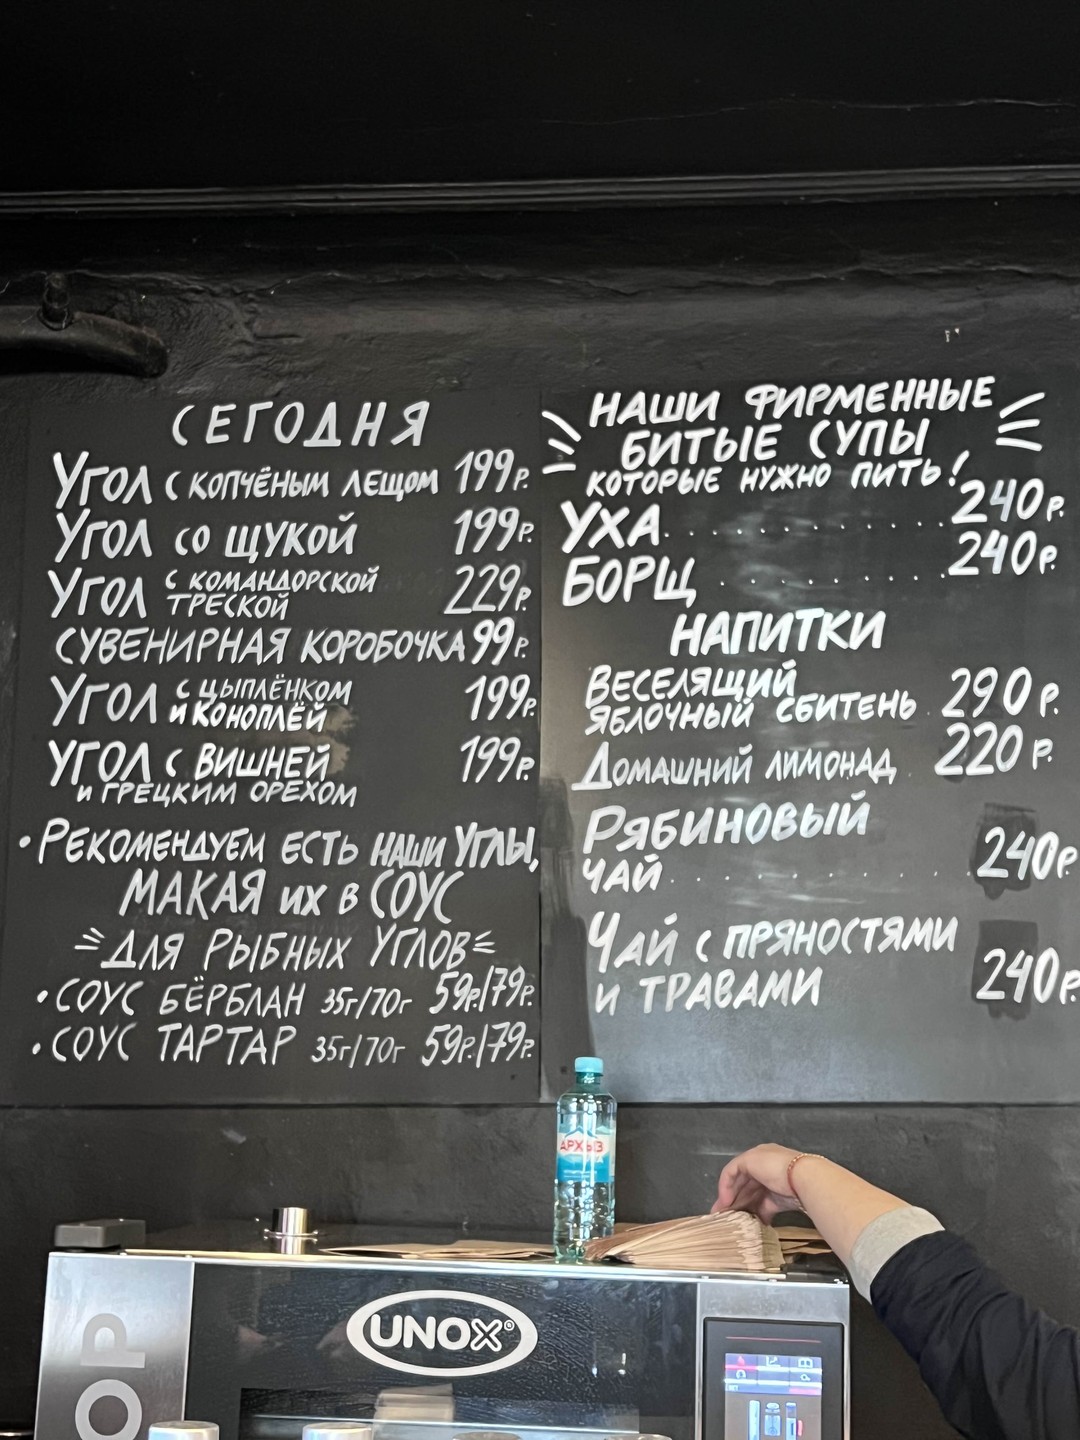 СЕГОДНЯ
УГОЛ С КОПЧЁНЫМ ЛЕЩОМ 199р.
УГОЛ СО ЩУКОЙ 199р.
УГОЛ С КОМАНДОРСКОЙ ТРЕСКОЙ 229р.
СУВЕНИРНАЯ КОРОБОЧКА 99р.
УГОЛ С ЦЫПЛЁНКОМ И КОНОПЛЁЙ 199р.
УГОЛ С ВИШНЕЙ 199р.
И ГРЕЦКИМ ОРЕХОМ
• РЕКОМЕНДУЕМ ЕСТЬ НАШИ УГЛЫ,
МАКАЯ ИХ В СОУС
ДЛЯ РЫБНЫХ УГЛОВ
• СОУС БЁРБЛАН 35г/70г 59р./79р.
• СОУС ТАРТАР 35г/70г 59р./79р.
НАШИ ФИРМЕННЫЕ
БИТЫЕ СУПЫ
КОТОРЫЕ НУЖНО ПИТЬ!
УХА.......... 240р.
БОРЩ.......... 240р.
НАПИТКИ
ВЕСЕЛЯЩИЙ
ЯБЛОЧНЫЙ СБИТЕНЬ 290р.
ДОМАШНИЙ ЛИМОНАД 220р.
РЯБИНОВЫЙ
ЧАЙ.......... 240р.
ЧАЙ С ПРЯНОСТЯМИ
И ТРАВАМИ 240р.
АРХЫЗ
UNOX®
OP